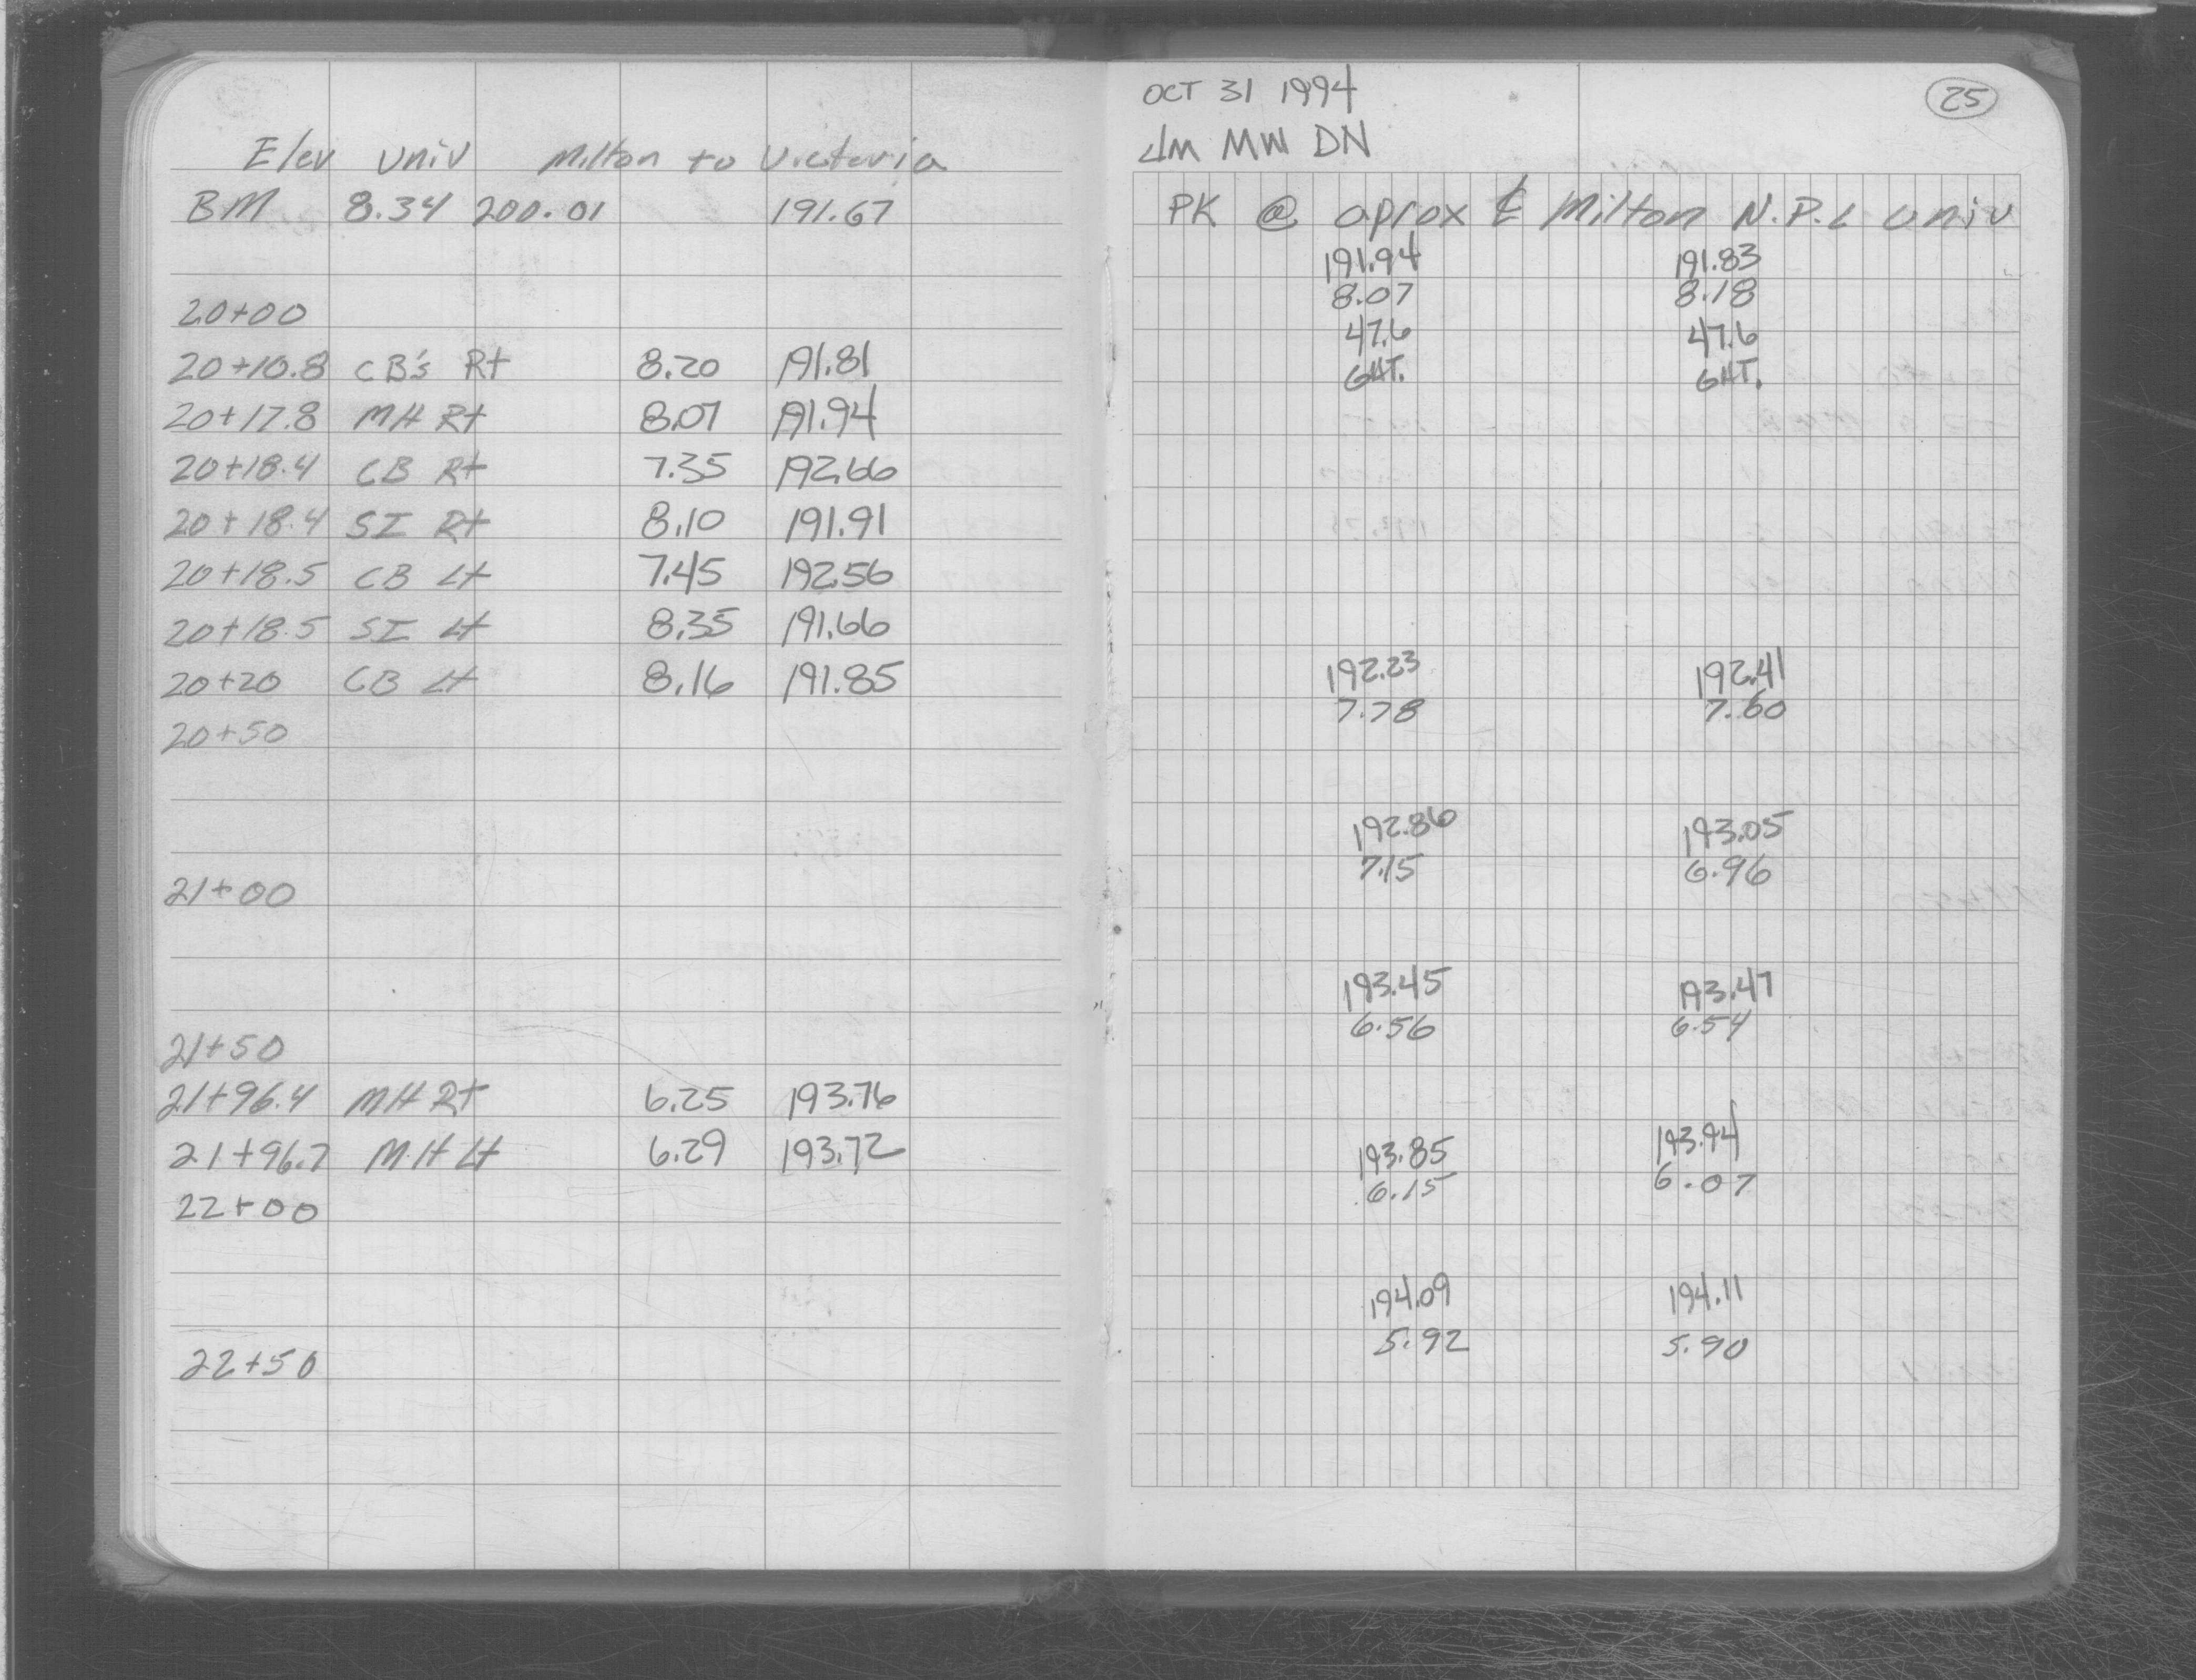 Elev Univ Milton to Victoria
BM 8.34 200.01 191.67
20+00
20+10.8 CB's Rt 8.20 191.81
20+17.8 MH Rt 8.07 191.94
20+18.4 CB Rt 7.35 192.66
20+18.4 SI Rt 8.10 191.91
20+18.5 CB Lt 7.45 192.56
20+18.5 SI Lt 8.35 191.66
20+20 CB Lt 8.16 191.85
20+50
21+00
21+50
21+96.4 MH Rt 6.25 193.76
21+96.7 MH Lt 6.29 193.72
22+00
22+50
OCT 31 1994
25
JM MW DN
PK @ aprox ℄ Milton N.P.L Univ
191.94 191.83
8.07 8.18
47.6 47.6
GUT. GUT.
192.23 192.41
7.78 7.60
192.86 193.05
7.15 6.96
193.45 193.47
6.56 6.54
193.85 193.94
6.15 6.07
194.09 194.11
5.92 5.90